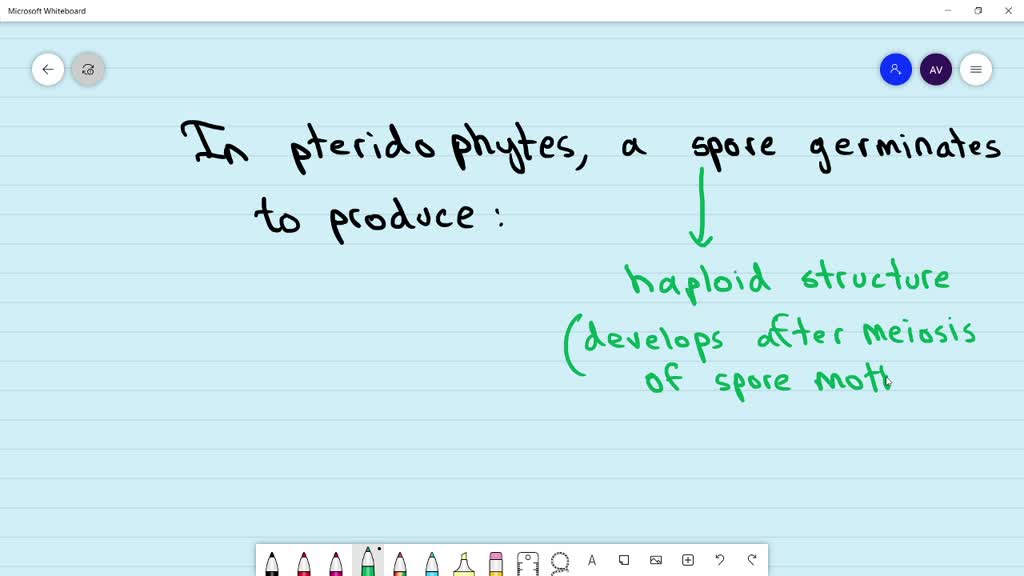 Microsoft Whiteboard
AV
In pteridophytes, a spore germinates
to produce:
haploid structure
(develops after meiosis
of spore moth
A